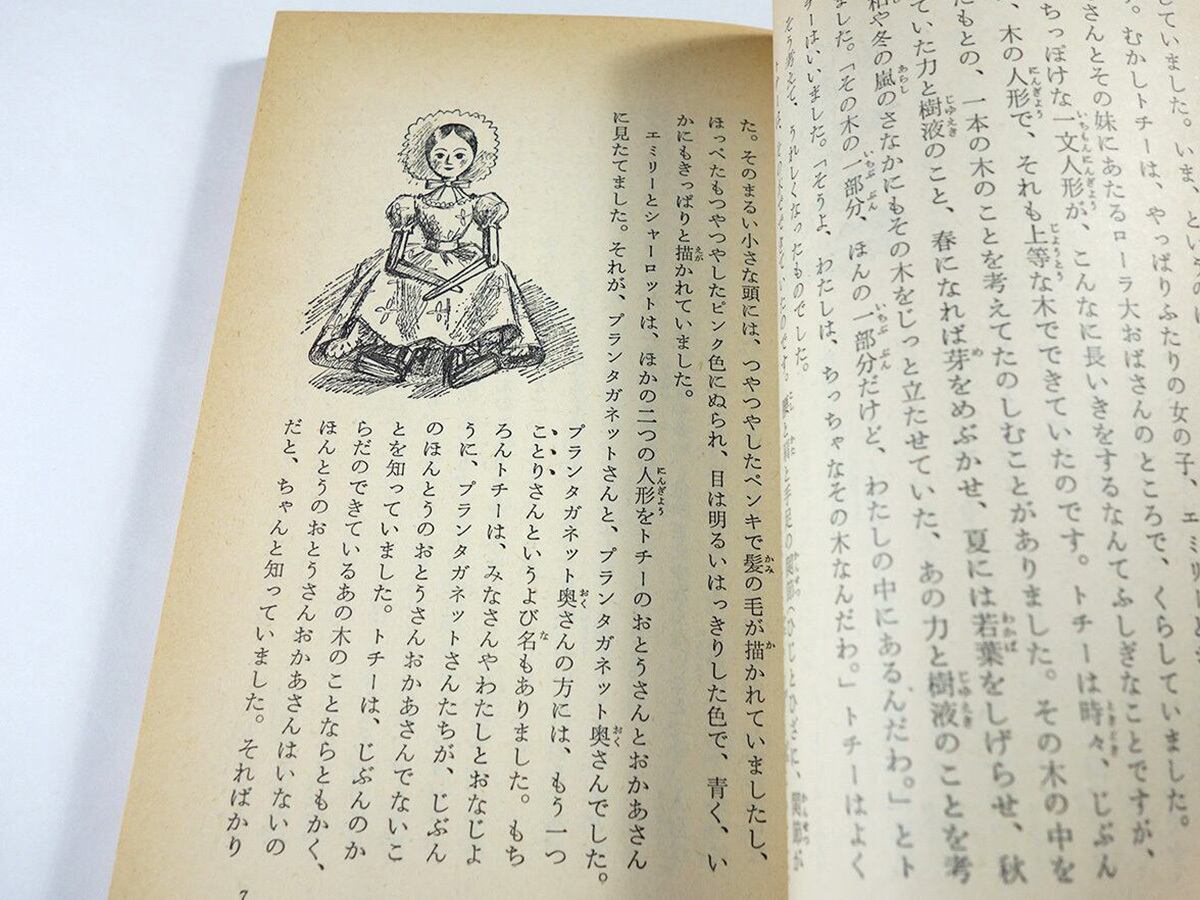 していました。いま、
す。むかしトチーは、やっぱりふたりの女の子、エミリ
さんとその妹にあたるローラ大おばさんのところで、くらしていました。
ちっぽけな一文人形が、こんなに長いきをするなんてふしぎなことですが、
、木の人形で、それも上等な木でできていたのです。トチーは時々、じぶん
たもとの、一本の木のことを考えてたのしむことがありました。その木の中を
ていた力と樹液のこと、春になれば芽をめぶかせ、夏には若葉をしげらせ、秋
和や冬の嵐のさなかにもその木をじっと立たせていた、あの力と樹液のことを考
ました。「その木の一部分、ほんの一部分だけど、わたしの中にあるんだわ。」とト
チーはいいました。「そうよ、わたしは、ちっちゃなその木なんだわ。」トチーはよく
そう考えて、うれしくなったものでした。
た。そのまるい小さな頭には、つやつやしたペンキで髪の毛が描かれていましたし、
ほっぺたもつやつやしたピンク色にぬられ、目は明るいはっきりした色で、青く、い
かにもきっぱりと描かれていました。
エミリーとシャーロットは、ほかの二つの人形をトチーのおとうさんとおかあさん
に見たてました。それが、プランタガネットさんと、プランタガネット奥さんでした。
プランタガネット奥さんの方には、もう一つ
ことりさんというよび名もありました。もち
ろんトチーは、みなさんやわたしとおなじよ
うに、プランタガネットさんたちが、じぶん
のほんとうのおとうさんおかあさんでないこ
とを知っていました。トチーは、じぶんのか
らだのできているあの木のことならともかく、
ほんとうのおとうさんおかあさんはいないの
だと、ちゃんと知っていました。そればかり
7